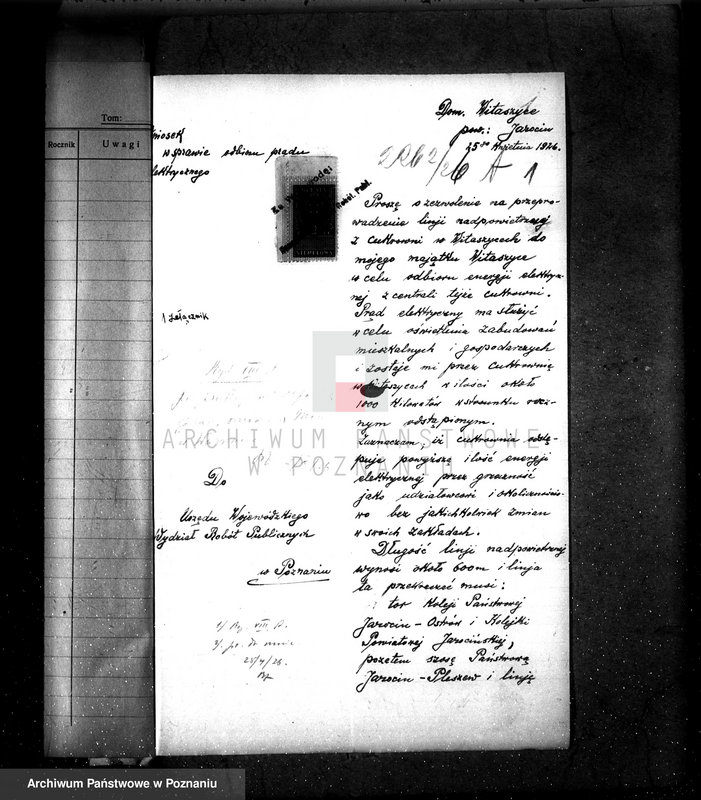 Tom:
Rocznik
Uwagi
Dom. Witaszyce
pow.: Jarocin
25go kwietnia 1926.
2262/26 A 1
Wniosek
w sprawie odbioru prądu
elektrycznego
Za Wojewodę:
Robót Publ.
1 załącznik
Do
Urzędu Wojewódzkiego
Wydział Robót Publicznych
w Poznaniu
Proszę o zezwolenie na przepro-
wadzenie linji nadpowietrznej
z cukrowni w Witaszycach do
mojego majątku Witaszyce
w celu odbioru energji elektrycz-
nej z centrali tejże cukrowni.
Prąd elektryczny ma służyć
w celu oświetlenia zabudowań
mieszkalnych i gospodarczych
i zostaje mi przez cukrownię
w Witaszycach w ilości około
1000 kilowatów w stosunku rocz-
nym odstąpionym.
Zaznaczam, iż cukrownia odstę-
puje powyższą ilość energji
elektrycznej przez grzeczność
jako udziałowcowi i okolicznościo-
wo bez jakichkolwiek zmian
w swoich zakładach.
Długość linji nadpowietrznej
wynosi około 600m i linja
ta przekraczać musi:
tor Koleji Państwowej
Jarocin - Ostrów i Kolejki
Powiatowej Jarocińskiej,
pozatem szosę Państwową
Jarocin - Pleszew i linję
27/4/26.
ARCHIWUM PAŃSTWOWE
W POZNANIU
Archiwum Państwowe w Poznaniu